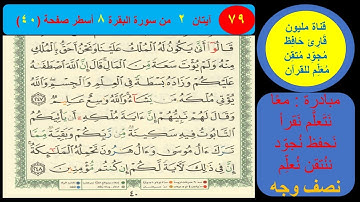 ٧٩
آيتان ٢ من سورة البقرة ٨ أسطر صفحة (٤٠)
قَالُوٓا۟ أَنَّىٰ يَكُونُ لَهُ ٱلْمُلْكُ عَلَيْنَا وَنَحْنُ أَحَقُّ بِٱلْمُلْكِ
مِنْهُ وَلَمْ يُؤْتَ سَعَةً مِّنَ ٱلْمَالِ قَالَ إِنَّ ٱللَّهَ ٱصْطَفَىٰهُ
عَلَيْكُمْ وَزَادَهُۥ بَسْطَةً فِى ٱلْعِلْمِ وَٱلْجِسْمِ وَٱللَّهُ
يُؤْتِى مُلْكَهُۥ مَن يَشَآءُ وَٱللَّهُ وَٰسِعٌ عَلِيمٌ ٢٤٧
وَقَالَ لَهُمْ نَبِيُّهُمْ إِنَّ ءَايَةَ مُلْكِهِۦٓ أَن يَأْتِيَكُمُ
ٱلتَّابُوتُ فِيهِ سَكِينَةٌ مِّن رَّبِّكُمْ وَبَقِيَّةٌ مِّمَّا
تَرَكَ ءَالُ مُوسَىٰ وَءَالُ هَٰرُونَ تَحْمِلُهُ ٱلْمَلَٰٓئِكَةُ
إِنَّ فِى ذَٰلِكَ لَءَايَةً لَّكُمْ إِن كُنتُم مُّؤْمِنِينَ ٢٤٨
٤٠
قناة مليون
قارئ حافظ
مُجوّد مُتقن
مُعلّم للقرآن
مبادرة : معًا
نَتَعلّم نَقرأ
نَحفظ نُجوّد
نُتقن نُعلّم
نصف وجه